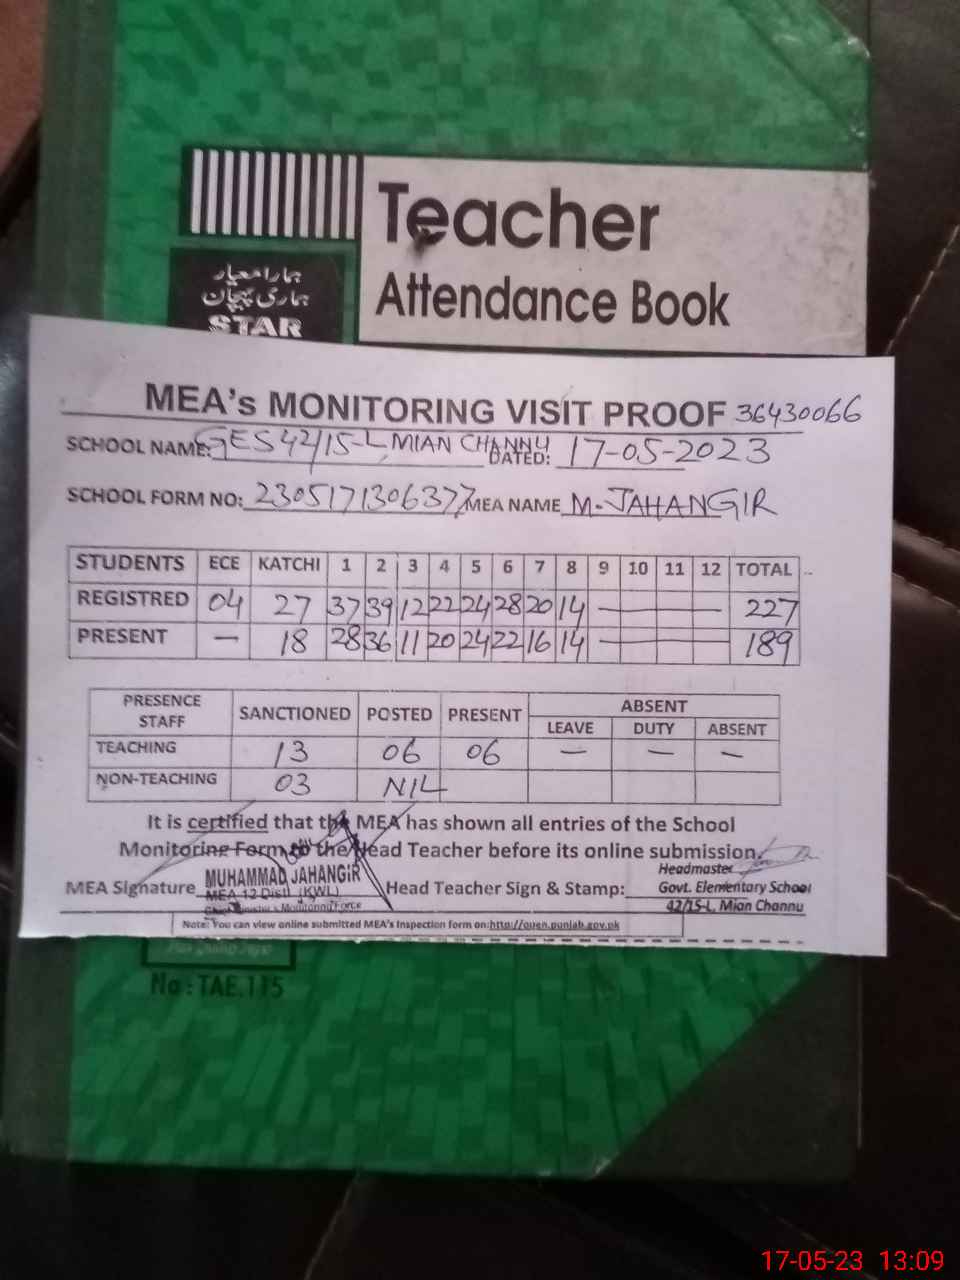 Teacher
Attendance Book
ہمارا معیار
ہماری پہچان
STAR
MEA's MONITORING VISIT PROOF 36430066
SCHOOL NAME: GES 42/15-L MIAN CHANNU DATED: 17-05-2023
SCHOOL FORM NO: 2305171306377 MEA NAME M. JAHANGIR
STUDENTS ECE KATCHI 1 2 3 4 5 6 7 8 9 10 11 12 TOTAL
REGISTRED 04 27 37 39 12 22 24 28 20 14 — 227
PRESENT — 18 28 36 11 20 24 22 16 14 — 189
PRESENCE STAFF SANCTIONED POSTED PRESENT ABSENT
LEAVE DUTY ABSENT
TEACHING 13 06 06 — — —
NON-TEACHING 03 NIL
It is certified that the MEA has shown all entries of the School
Monitoring Form to the Head Teacher before its online submission.
MEA Signature MUHAMMAD JAHANGIR Head Teacher Sign & Stamp: Headmaster
MEA 12 Distt (KWL) Govt. Elementary School
Chief Minister's Monitoring Force 42/15-L, Mian Channu
Note: You can view online submitted MEA's Inspection form on:http://open.punjab.gov.pk
No: TAE.115
17-05-23 13:09